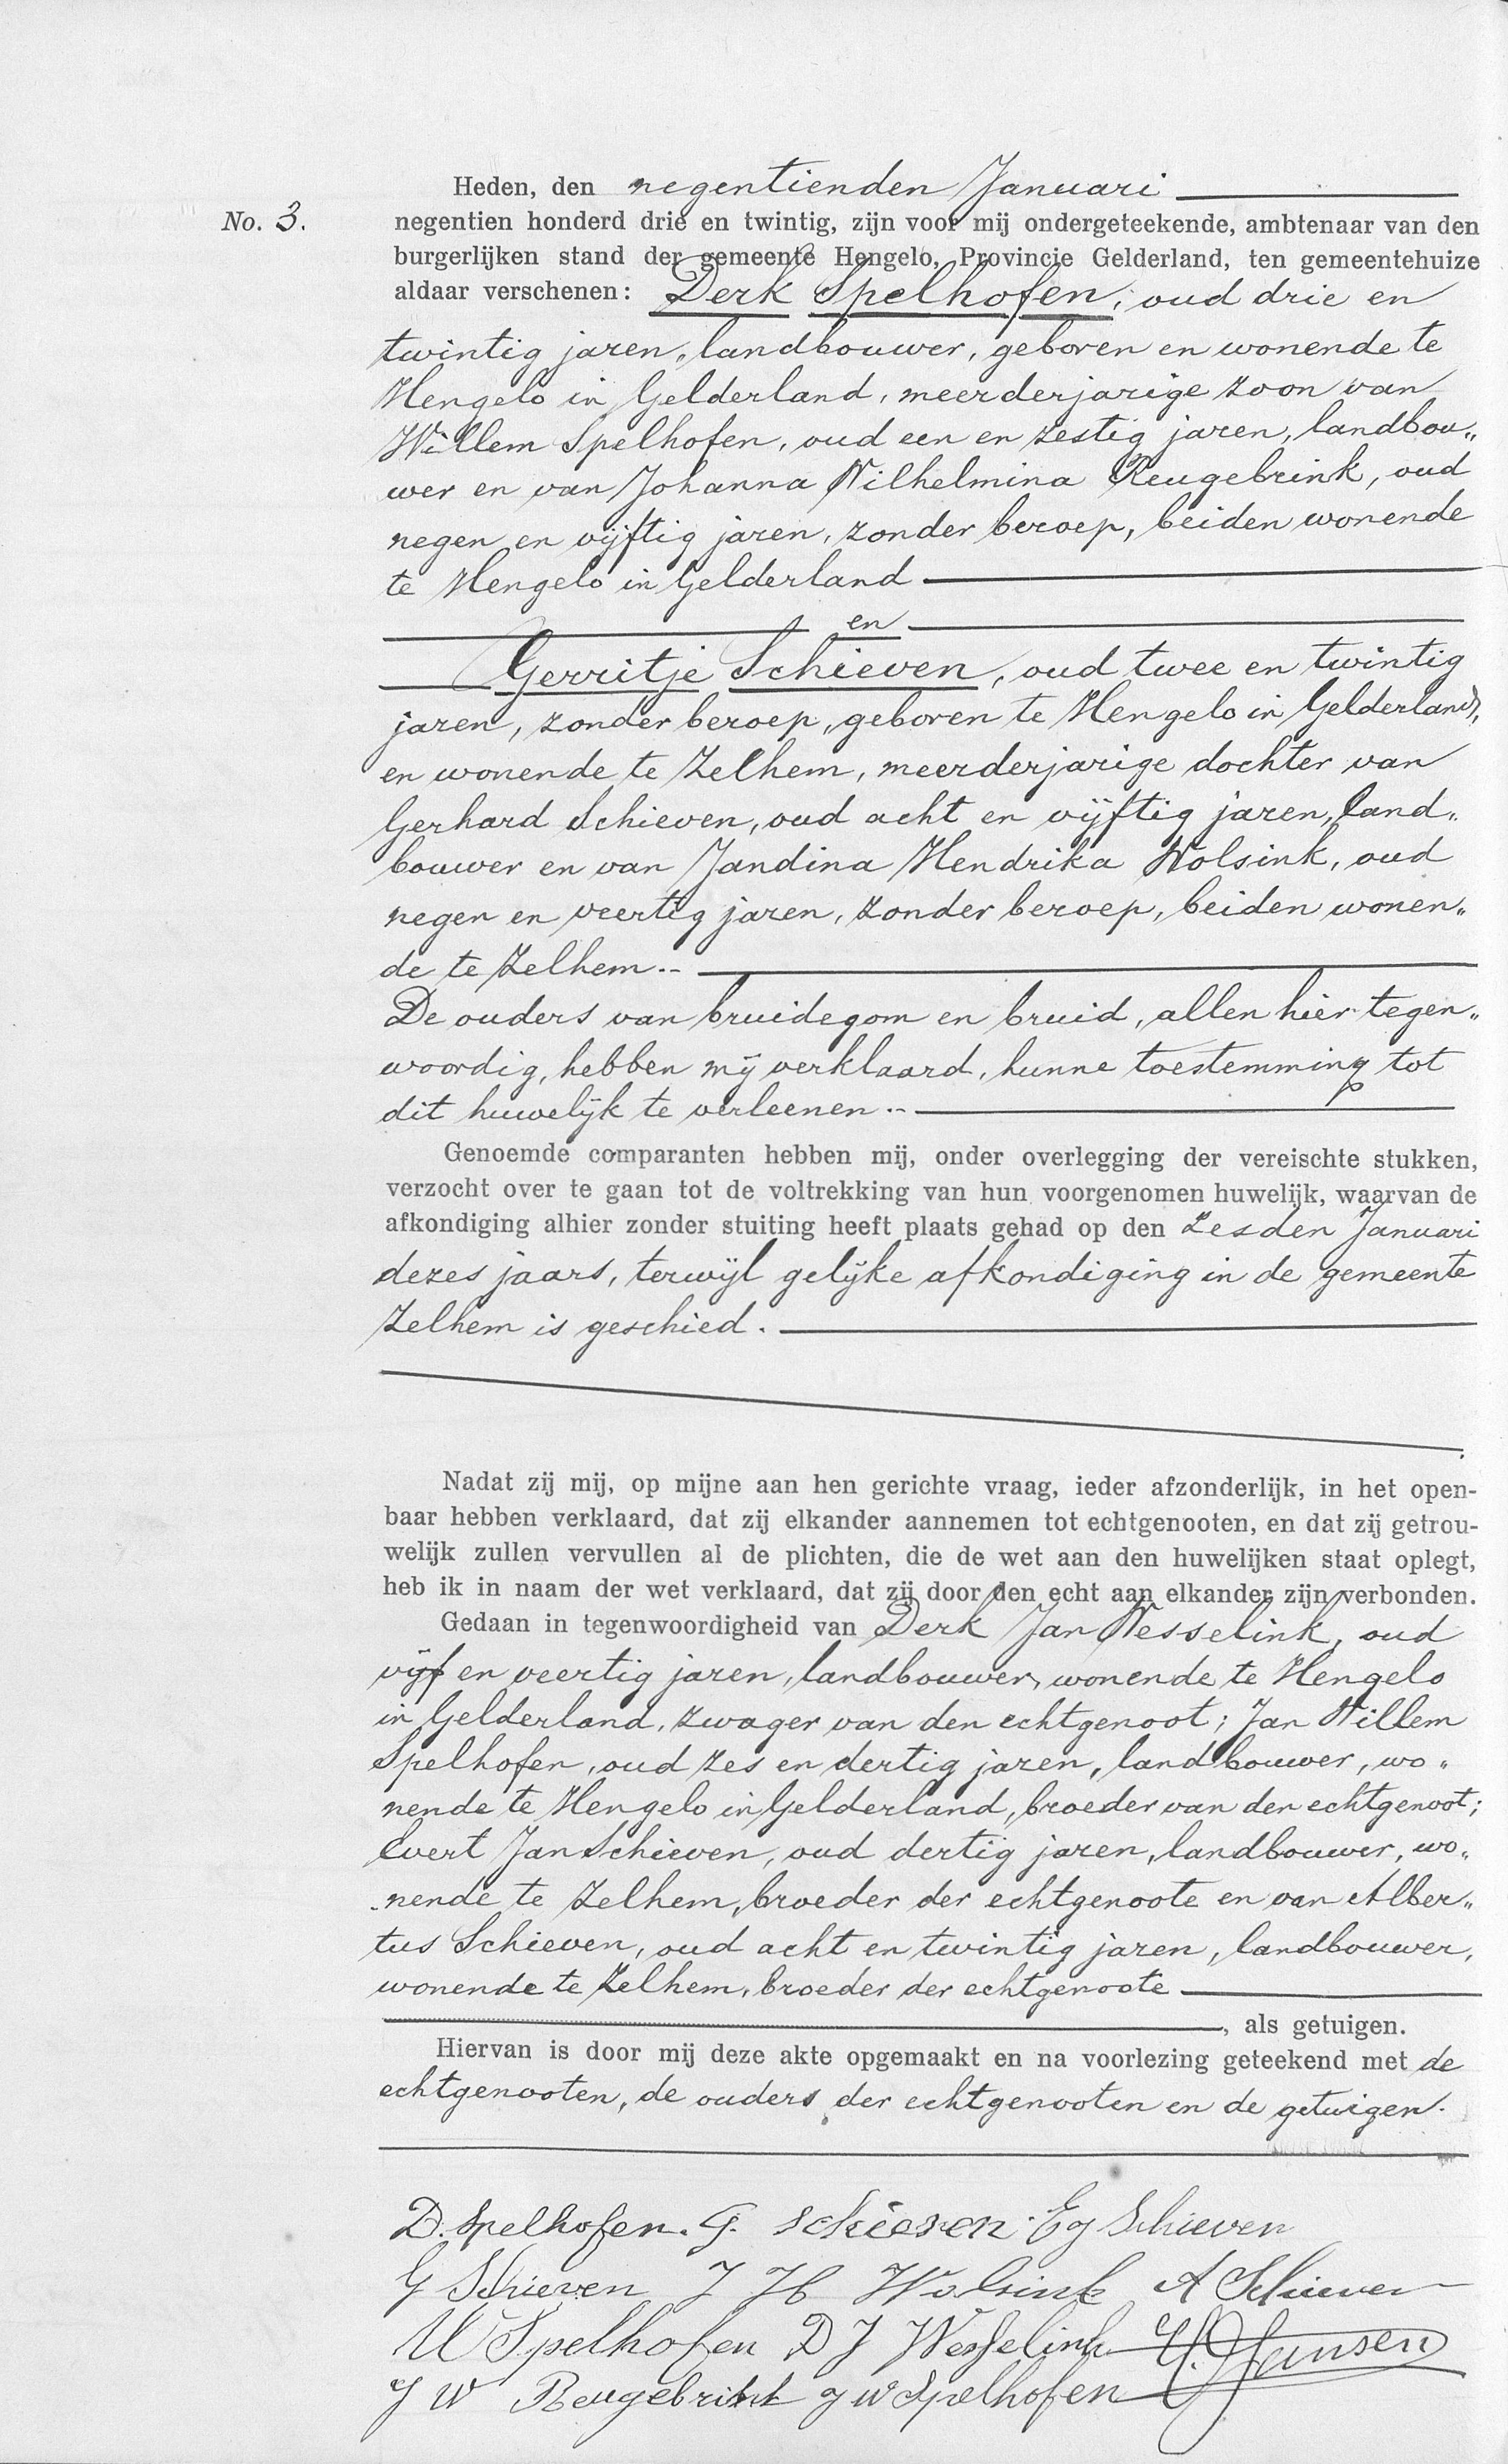 Heden, den negentienden Januari
No. 3.
negentien honderd drie en twintig, zijn voor mij ondergeteekende, ambtenaar van den
burgerlijken stand der gemeente Hengelo, Provincie Gelderland, ten gemeentehuize
aldaar verschenen: Derk Spelhofen, oud drie en
twintig jaren, landbouwer, geboren en wonende te
Hengelo in Gelderland, meerderjarige zoon van
Willem Spelhofen, oud een en zestig jaren, landbou„
wer en van Johanna Wilhelmina Reugebrink, oud
negen en vijftig jaren, zonder beroep, beiden wonende
te Hengelo in Gelderland
en
Gerritje Schieven, oud twee en twintig
jaren, zonder beroep, geboren te Hengelo in Gelderland,
en wonende te Zelhem, meerderjarige dochter van
Gerhard Schieven, oud acht en vijftig jaren, land„
bouwer en van Jandina Hendrika Wolsink, oud
negen en veertig jaren, zonder beroep, beiden wonen„
de te Zelhem.-
De ouders van bruidegom en bruid, allen hier tegen„
woordig, hebben mij verklaard, hunne toestemming tot
dit huwelijk te verleenen.-
Genoemde comparanten hebben mij, onder overlegging der vereischte stukken,
verzocht over te gaan tot de voltrekking van hun voorgenomen huwelijk, waarvan de
afkondiging alhier zonder stuiting heeft plaats gehad op den zesden Januari
dezes jaars, terwijl gelijke afkondiging in de gemeente
Zelhem is geschied.
Nadat zij mij, op mijne aan hen gerichte vraag, ieder afzonderlijk, in het open-
baar hebben verklaard, dat zij elkander aannemen tot echtgenooten, en dat zij getrou-
welijk zullen vervullen al de plichten, die de wet aan den huwelijken staat oplegt,
heb ik in naam der wet verklaard, dat zij door den echt aan elkander zijn verbonden.
Gedaan in tegenwoordigheid van Derk Jan Wesselink, oud
vijf en veertig jaren, landbouwer, wonende te Hengelo
in Gelderland, zwager van den echtgenoot; Jan Willem
Spelhofen, oud zes en dertig jaren, landbouwer, wo„
nende te Hengelo in Gelderland, broeder van den echtgenoot;
Evert Jan Schieven, oud dertig jaren, landbouwer, wo„
nende te Zelhem, broeder der echtgenoote en van Alber„
tus Schieven, oud acht en twintig jaren, landbouwer,
wonende te Zelhem, broeder der echtgenoote
, als getuigen.
Hiervan is door mij deze akte opgemaakt en na voorlezing geteekend met de
echtgenooten, de ouders der echtgenooten en de getuigen.
D. Spelhofen. G. Schieven. E J Schieven
G Schieven J H Wolsink A Schieven
W Spelhofen D J Wesselink Jansen
J W Reugebrink J W Spelhofen